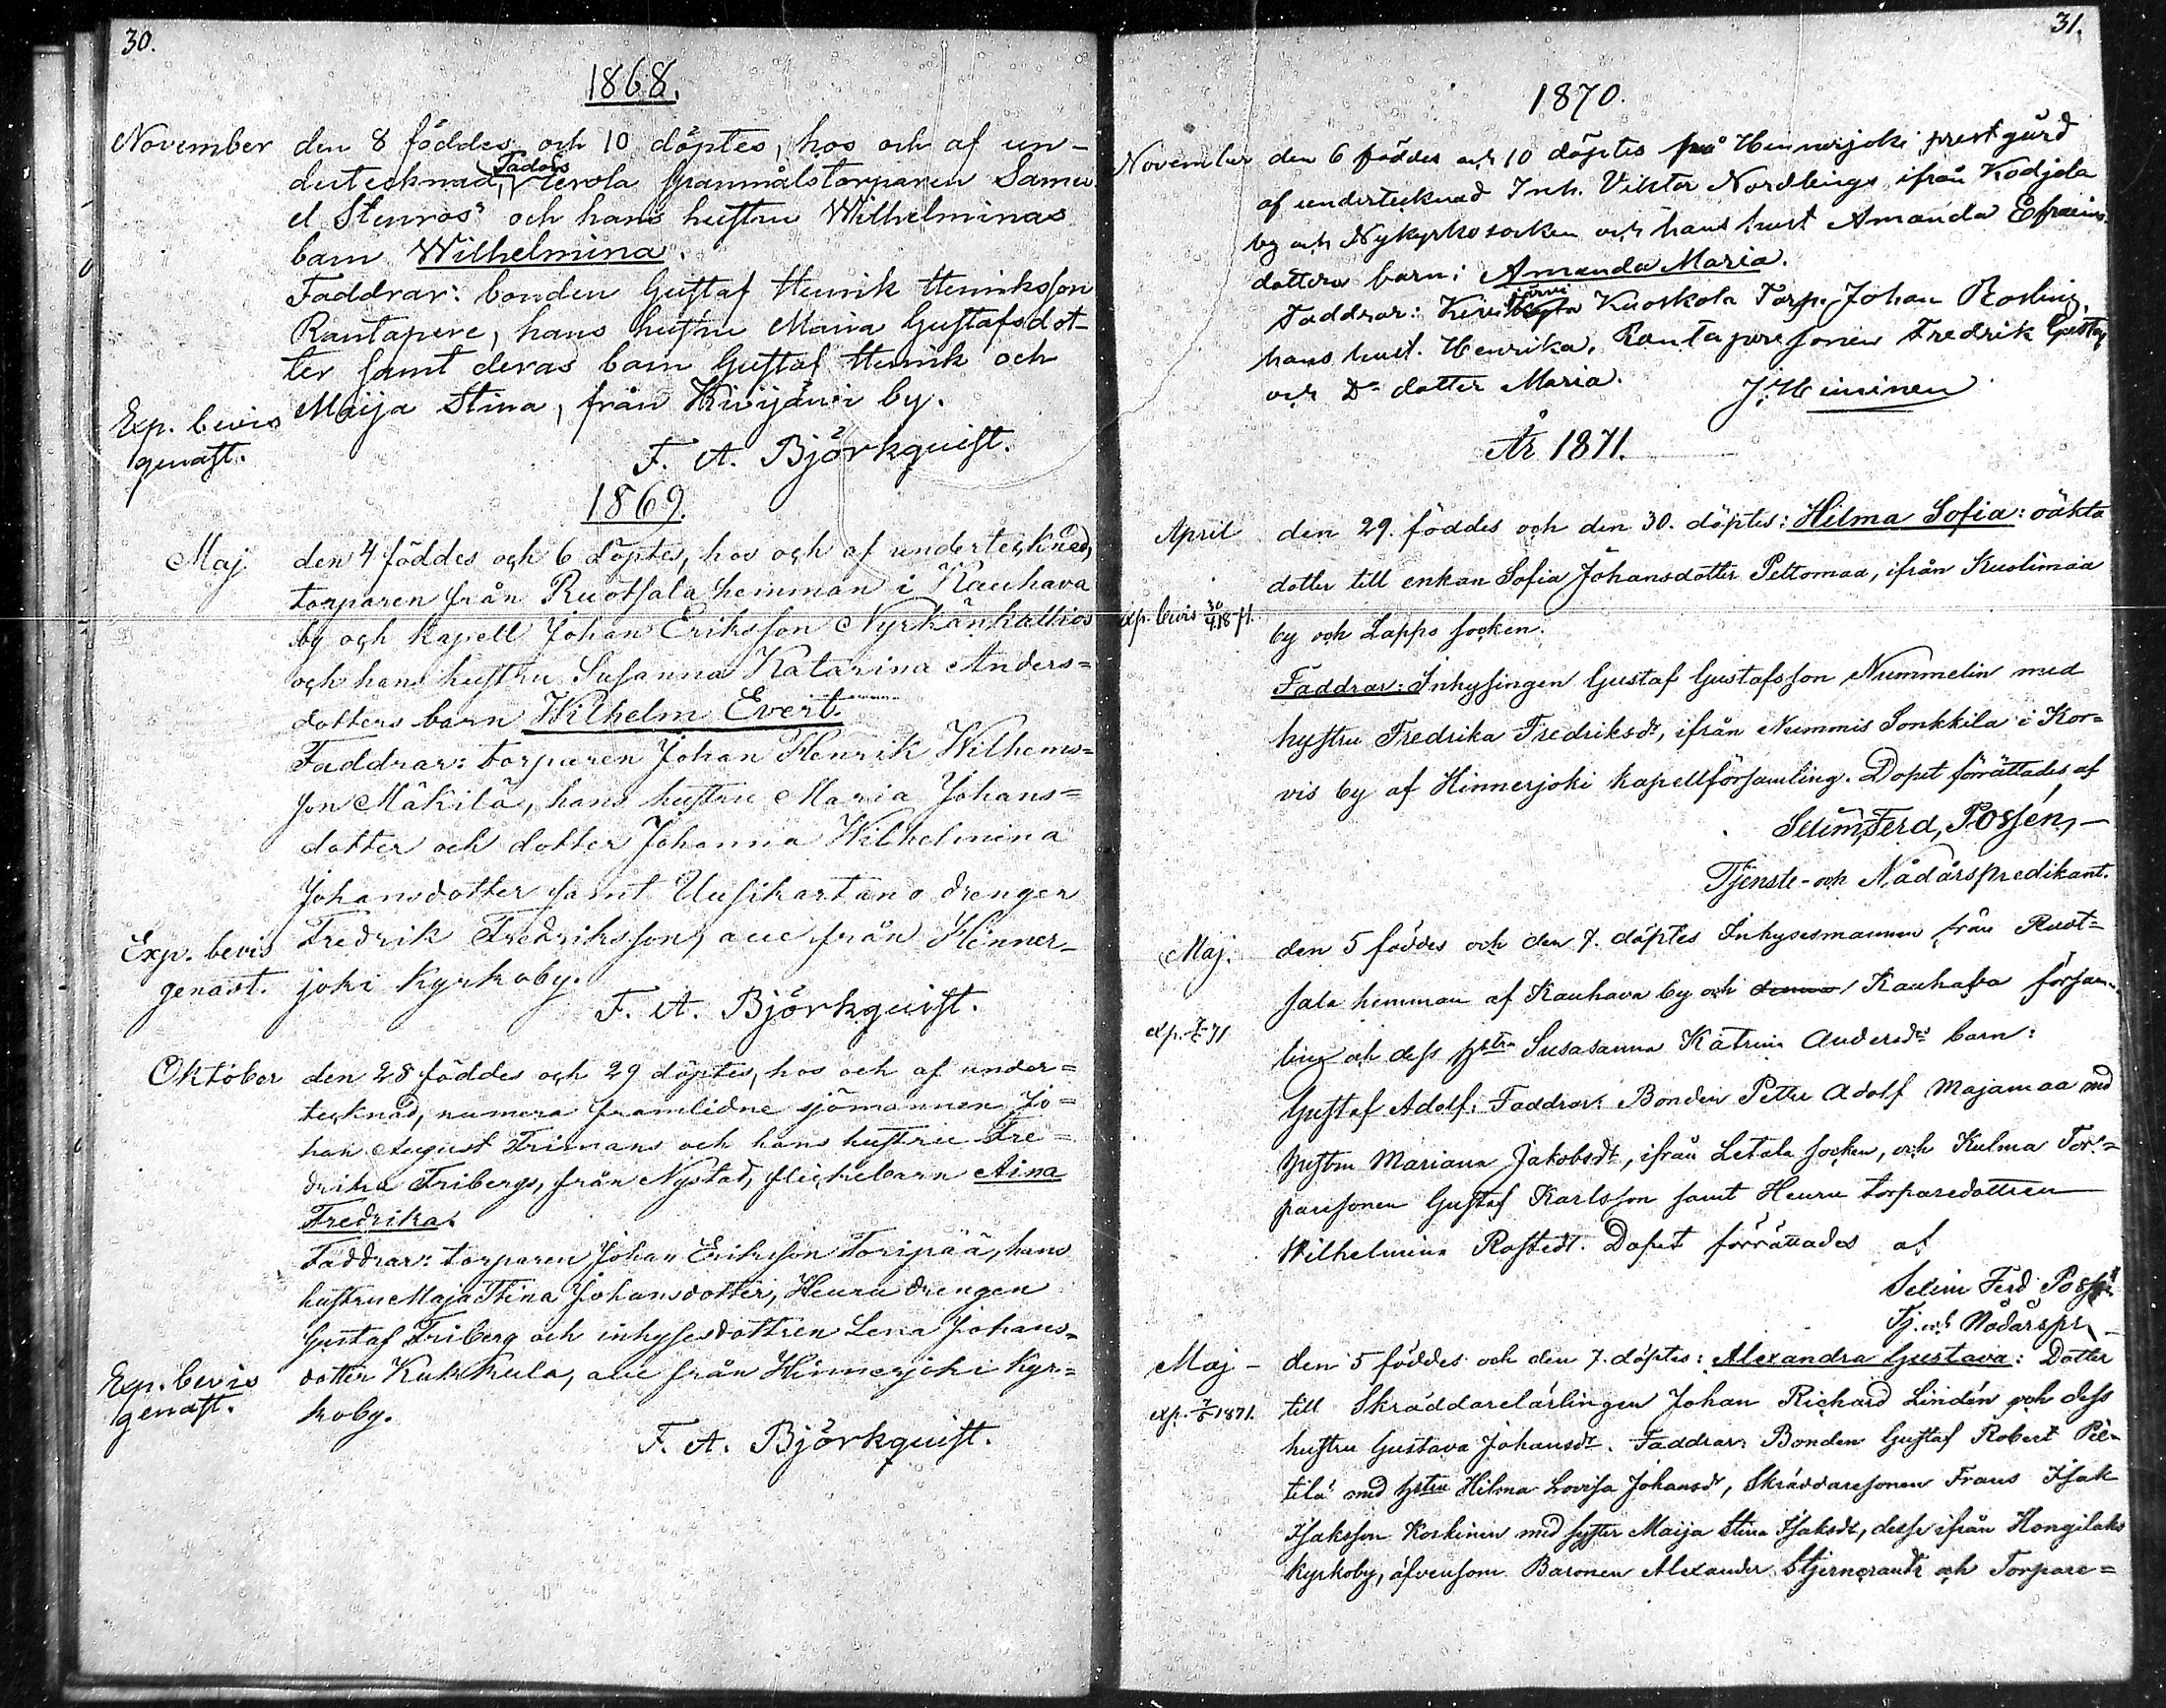 30.
1868.
November den 8 föddes och 10 döptes, hos och af un-
dertecknad, Tadois Uerola Grannmålstorparen Samu
el Stenros' och hans hustru Wilhelminas
barn Wilhelmina.
Faddrar: bonden Gustaf Henrik Henriksson
Rantapere, hans hustru Maria Gustafsdot-
ter samt deras barn Gustaf Henrik och
Maija Stina, från Kivijärvi by.
Exp. bevis
genast.
F. A. Björkquist.
1869.
Maj den 4 föddes och 6 döptes, hos och af undertecknad,
torparen från Ruotsala hemman i Kauhava
by och kapell Johan Eriksson Nyrkänkallios
och hans hustru Susanna Katarina Anders=
dotters barn Wilhelm Evert.
Faddrar: torparen Johan Henrik Wilhems=
son Mäkilä, hans hustru Maria Johans=
dotter och dotter Johanna Wilhelmina
Johansdotter samt Uusikartano drengen
Fredrik Fredriksson, alle från Hinner-
joki kyrkoby.
Exp. bevis
genast.
F. A. Björkquist.
Oktober den 28 föddes och 29 döptes, hos och af under=
tecknad, numera framlidne sjömannen Jo=
han August Frimans och hans hustru Fre=
drika Fribergs, från Nystad, flickebarn Aina
Fredrika.
Faddrar: torparen Johan Eriksson Toripää, hans
hustru Maja Stina Johansdotter, Heuru drengen
Gustaf Friberg och inhysesdottren Lena Johans=
dotter Kukkula, alle från Hinnerjoki Kyr=
koby.
Exp. bevis
genast.
F. A. Björkquist.
31.
1870.
November den 6 föddes och 10 döptes på Hinnerjoki prestgård
af undertecknad Inh. Viktor Nordlings ifrån Kodjala
by och Nykyrko socken och hans hust Amanda Efraims
dotters barn: Amanda Maria.
Faddrar: Kivijärvi Kuoskola Torp. Johan Rosling,
hans hust. Henrika, Rantapere sonen Fredrik Gustaf
och D:o dotter Maria. J. Heininen
År 1871.
April den 29. föddes och den 30. döptes: Hilma Sofia: oäkta
dotter till enkan Sofia Johansdotter Peltomaa, ifrån Kuolimaa
exp. bevis 30/4 18-71. by och Lappo socken.
Faddrar: Inhysingen Gustaf Gustafsson Nummelin med
hustru Fredrika Fredriksdr, ifrån Nummis Sonkkila i Kor=
vis by af Hinnerjoki kapellförsamling. Dopet förrättades af
Selim Ferd, Possén,-
Tjenste- och Nådårspredikant.
Maj. den 5 föddes och den 7. döptes Inhysesmannen från Ruot=
sala hemman af Kauhava by och denna Kauhava försam-
exp. 7/5 71 ling och dess hstru Susasanna Katrina Andersds barn:
Gustaf Adolf. Faddrar: Bonden Petter Adolf Majamaa med
hustru Mariana Jakobsdr, ifrån Letala socken, och Kulma Tor=
paresonen Gustaf Karlsson samt Heuru torparedottren
Wilhelmina Rostedt. Dopet förrättades af
Selim Ferd Possén
Tj. och Nådårspr.-
Maj - den 5 föddes och den 7. döptes: Alexandra Gustava: Dotter
exp. 7/5 1871. till Skräddarelärlingen Johan Richard Lindén och dess
hustru Gustava Johansdr. Faddrar: Bonden Gustaf Robert Pil-
tilä med hstru Hilma Lovisa Johansdr, Skräddaresonen Frans Isak
Isaksson Koskinen med syster Maija Stina Isaksdr, desse ifrån Hongilaks
kyrkoby, äfvensom Baronen Alexander Stjerncrantz och Torpare=